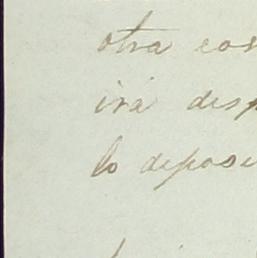 otra cos
irá desp
lo depose